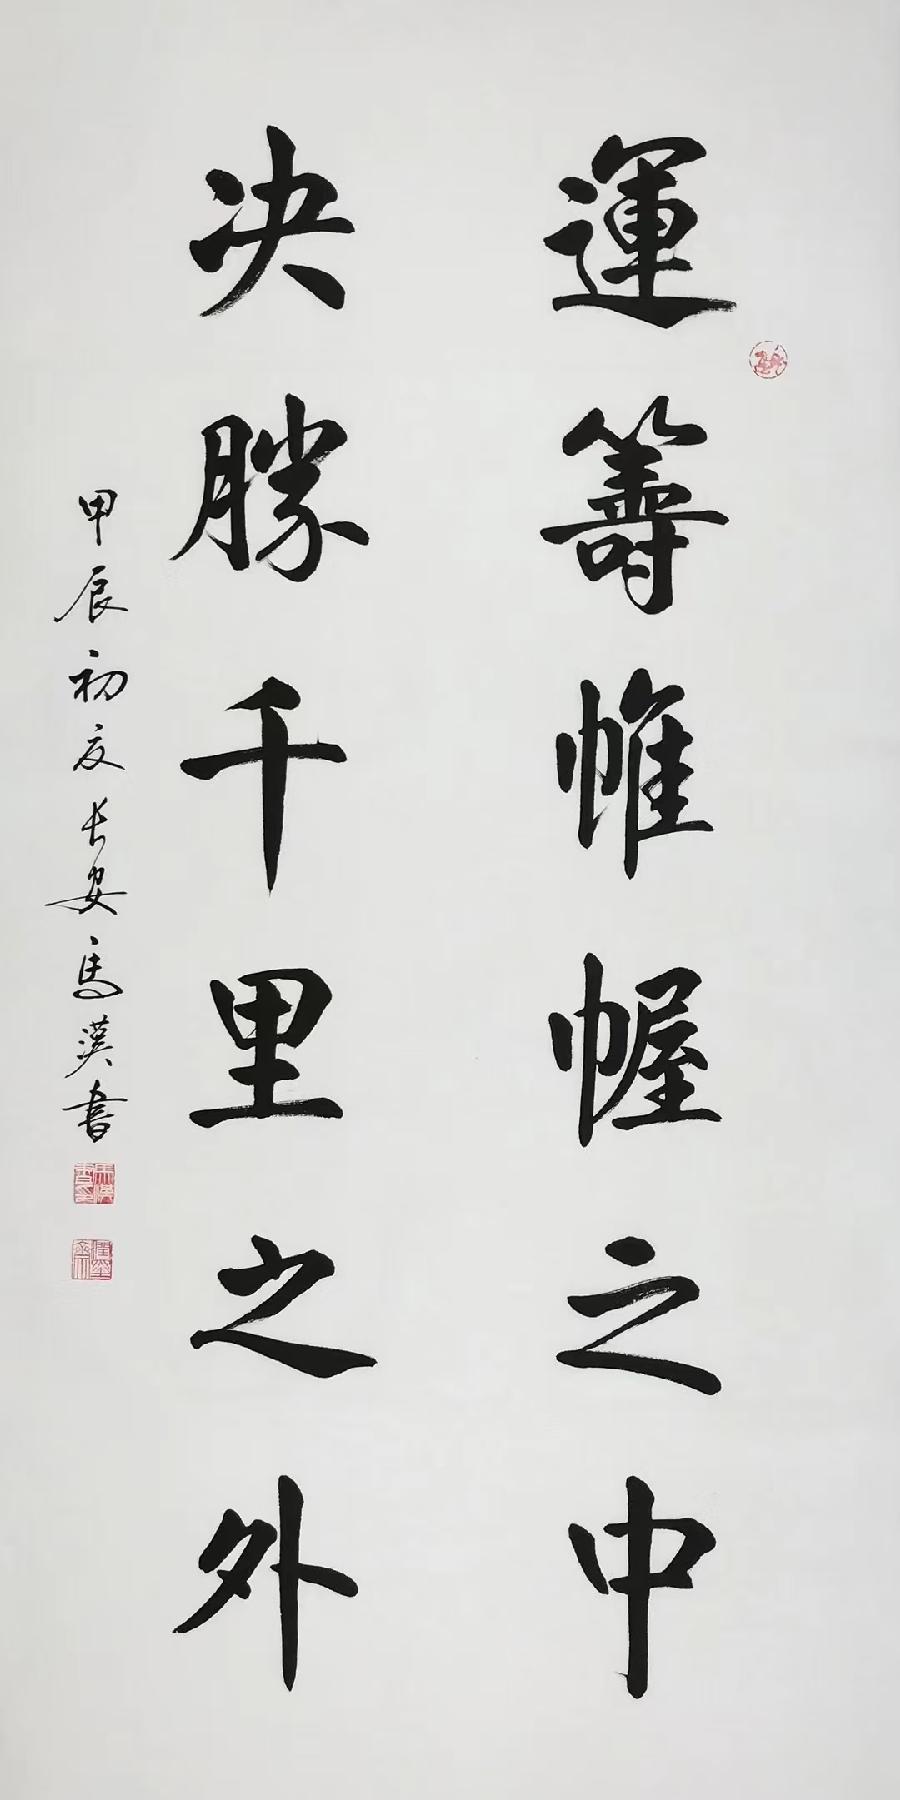 運籌帷幄之中
决勝千里之外
甲辰初夏长安馬漢書